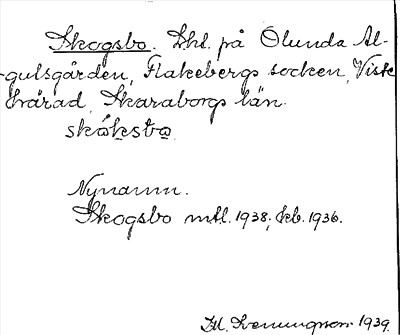 Skogsbo. Lhl. på Ölunda Al-
gutsgården, Flakebergs socken, Viste
härad, Skaraborgs län.
skóksbo
Nynamn.
Skogsbo mtl. 1938, kb. 1936.
Linnungson 1939.